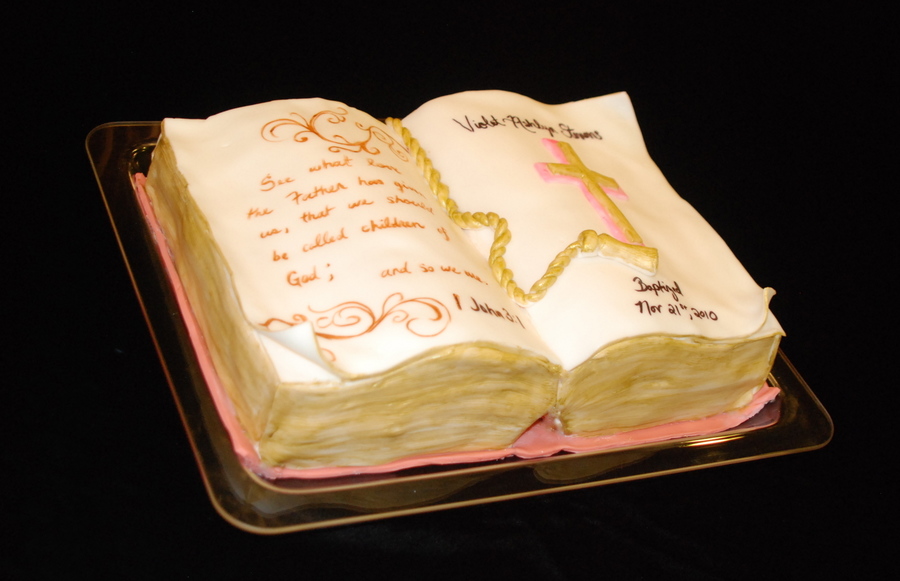 See what love
the Father has given
us, that we should
be called children of
God; and so we are.
1 John 3:1
Violet
Baptized
Nov 21st, 2010